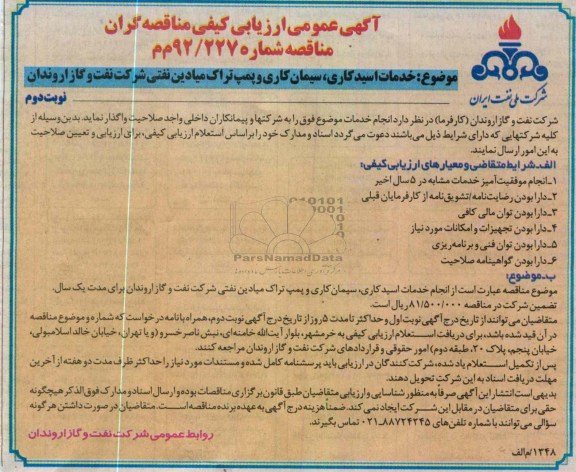 آگهی عمومی ارزیابی کیفی مناقصه گران
مناقصه شماره ۹۲/۲۲۷م‌م
موضوع: خدمات اسیدکاری، سیمان کاری و پمپ تراک میادین نفتی شرکت نفت و گاز اروندان
شرکت ملی نفت ایران
نوبت دوم
شرکت نفت و گاز اروندان (کارفرما) در نظر دارد انجام خدمات موضوع فوق را به شرکتها و پیمانکاران داخلی واجد صلاحیت واگذار نماید. بدین وسیله از
کلیه شرکتهایی که دارای شرایط ذیل می‌باشند دعوت می‌گردد اسناد و مدارک خود را براساس استعلام ارزیابی کیفی، برای ارزیابی و تعیین صلاحیت
به این امور ارسال نمایند.
الف-شرایط متقاضی و معیارهای ارزیابی کیفی:
۱-انجام موفقیت آمیز خدمات مشابه در ۵ سال اخیر
۲-دارا بودن رضایت‌نامه/تشویق‌نامه از کارفرمایان قبلی
۳-دارا بودن توان مالی کافی
۴-دارا بودن تجهیزات و امکانات مورد نیاز
۵-دارا بودن توان فنی و برنامه‌ریزی
۶-دارا بودن گواهینامه صلاحیت
ParsNamadData
ب-موضوع:
موضوع مناقصه عبارت است از انجام خدمات اسیدکاری، سیمان کاری و پمپ تراک میادین نفتی شرکت نفت و گاز اروندان برای مدت یک سال.
تضمین شرکت در مناقصه ۸۱/۵۰۰/۰۰۰ ریال است.
متقاضیان می‌توانند از تاریخ درج آگهی نوبت اول و حداکثر تا مدت ۵ روز از تاریخ درج آگهی نوبت دوم، همراه با نامه درخواست که شماره و موضوع مناقصه
در آن قید شده باشد، برای دریافت استعلام ارزیابی کیفی به خرمشهر، بلوار آیت‌الله خامنه‌ای، نبش ناصر خسرو (و یا تهران، خیابان خالد اسلامبولی،
خیابان پنجم، پلاک ۲۰، طبقه دوم) امور حقوقی و قراردادهای شرکت نفت و گاز اروندان مراجعه کنند.
پس از تکمیل استعلام یاد شده، شرکت کنندگان در ارزیابی باید پرسشنامه کامل شده و مستندات مورد نیاز را حداکثر ظرف مدت دو هفته از آخرین
مهلت دریافت اسناد به این شرکت تحویل دهند.
بدیهی است انتشار این آگهی صرفاً به منظور شناسایی و ارزیابی متقاضیان طبق قانون برگزاری مناقصات بوده و ارسال اسناد و مدارک فوق الذکر هیچگونه
حقی برای متقاضیان در مقابل این شرکت ایجاد نمی‌کند. ضمناً هزینه درج آگهی به عهده برنده مناقصه است. متقاضیان در صورت داشتن هر گونه
سؤالی می‌توانند با شماره تلفن‌های ۸۸۷۲۴۲۴۵-۰۲۱ تماس بگیرند.
روابط عمومی شرکت نفت و گاز اروندان
۱۳۴۸/م‌الف